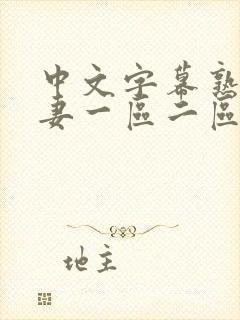 中文字幕熟
妻一區二區
地主